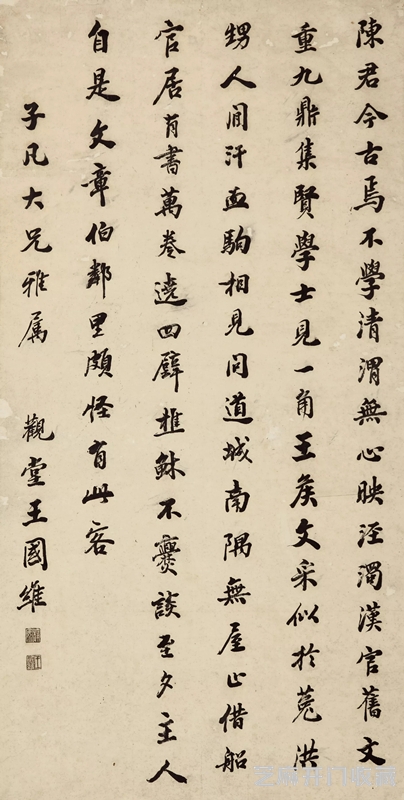 陳君今古焉不學清渭無心映涇濁漢官舊文
重九鼎集賢學士見一角王侯文采似於菟洪
甥人間汗血駒相見問道城南隅無屋止借船
官居有書萬卷遶四壁樵穌不爨談至夕主人
自是文章伯鄰里頗怪有此客
子凡大兄雅属 觀堂王國維